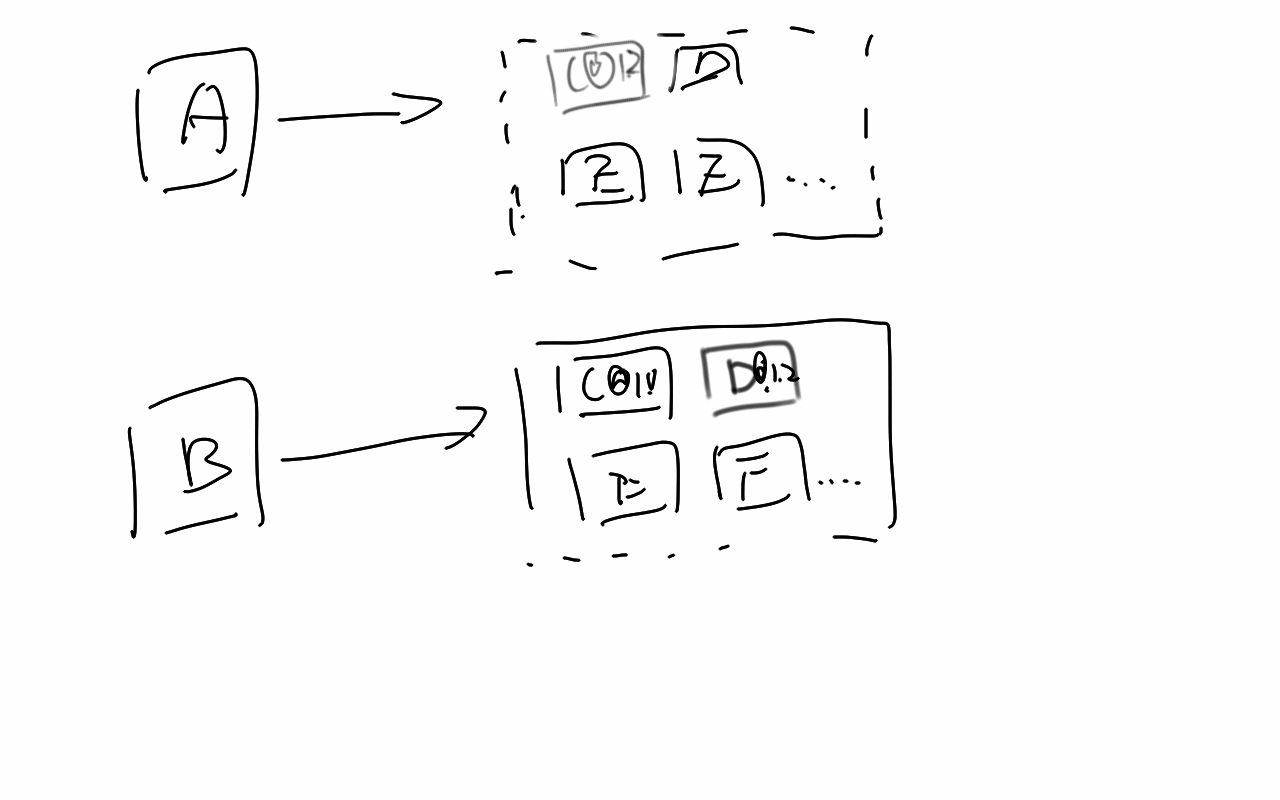 A
C@12 D
E Z ....
B
C@11 D@1.2
E F ....